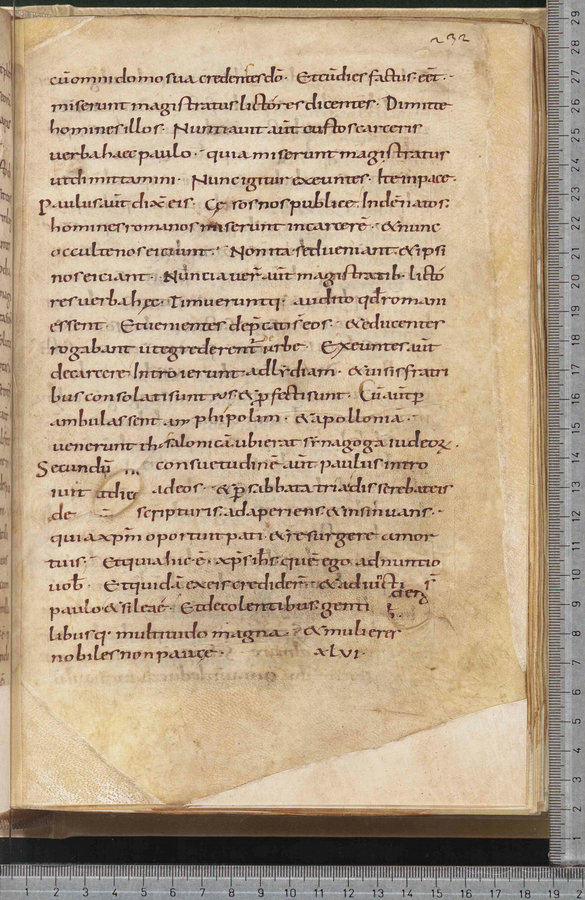 232
cū omni domo sua credentes dō. Et cū dies factus eēt.
miserunt magistratus lictores dicentes. Dimitte
homines illos. Nuntiavit aūt custos carceris
verba haec paulo. quia miserunt magistratus
ut dimittamini. Nunc igitur exeuntes. Ite in pace.
Paulus aūt dix eis. Cęsos nos publice. Indēnatos.
homines romanos miserunt in carcerē. & nunc
occulte nos eiciunt. Non ita sed veniant. & ipsi
nos eiciant. Nuncia ver̄ aūt magistratib. licto
res verba hęc. Timueruntq. audito qd romani
essent. Et venientes dep̄cati s̄ eos. & educentes
rogabant ut egrederent̄ urbe. Exeuntes aūt
de carcere Introierunt ad lydiam. & visis fratri
bus consolati sunt eos & p̄fecti sunt. Cū aūt p
ambulassent amphipolim. & apolloniā.
venerunt thessalonicā ubi erat synagoga iudeoꝝ.
Secundū consuetudinē aūt paulus intro
ivit ad eos. & p̄ sabbata tria disserebat eis
de scripturis. adaperiens & insinuans.
quia xp̄m oportuit pati. & resurgere a mor
tuis. Et quia hic ē. xp̄s ih̄s quē ego adnuntio
vob. Et quidā ex eis credider̄. & adiuncti s̄
paulo & sileae. Et de colentibus. genti
libusq. multitudo magna. & mulieres
nobiles non paucę. XLVI.